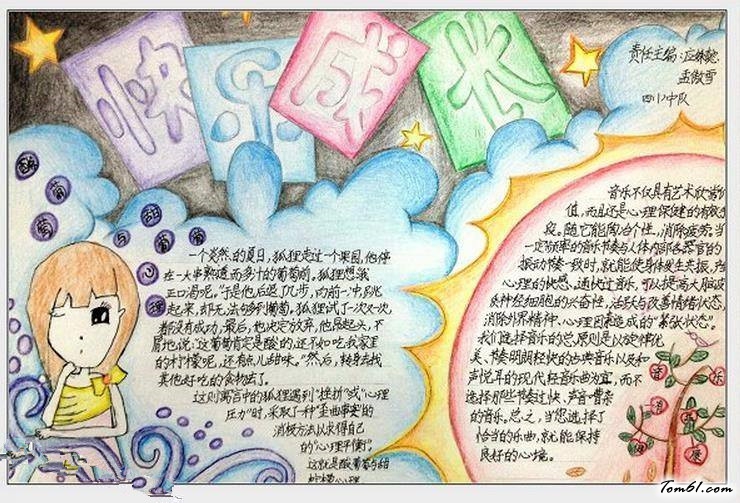 快乐成长
责任主编:应姝懿
孟傲雪
四(1)中队
酸葡萄与甜柠檬心理
一个炎热的夏日,狐狸走过一个果园,他停
在一大串熟透而多汁的葡萄前。狐狸想:我
正口渴呢。"于是他后退了几步,向前一冲,跳
起来,却无法够到葡萄。狐狸试了一次又一次,
都没有成功,最后,他决定放弃,他昂起头,不
屑地说:这葡萄肯定是酸的,还不如吃我家里
的柠檬呢,还有点儿甜味。"然后,转身去找
其他好吃的食物去了。
这则寓言中的狐狸遇到"挫折"或"心理
压力"时,采取了一种"歪曲事实"的
消极方法以求得自己
的"心理平衡"。
这就是酸葡萄与甜
柠檬心理
音乐不仅具有艺术欣赏价
值,而且还是心理保健的有效手
段。随它能陶冶个性,消除疲劳;当
一定频率的音乐节奏与人体内部各器官的
振动节奏一致时,就能使身体发生共振,产
心理的快感。通快过音乐,可以提高大脑皮
及神经细胞的兴奋性,活跃与改善情绪状态,
消除外界精神、心理因素造成的"紧张状态"。
我们选择音乐的总原则是以旋律优
美、节奏明朗轻快的古典音乐以及和
声悦耳的现代轻音乐曲为宜,而不
选择那些节奏过快、声音嘈杂
的音乐。总之,当您选择了
恰当的乐曲,就能保持
良好的心境。
Tom61.com